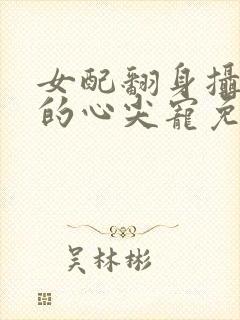 女配翻身攝
的心尖寵免
吴林彬